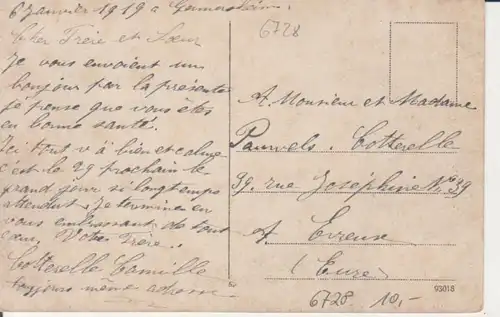 6 Janvier 1919 a Germersheim
Cher Frère et Sœur
Je vous envoient un
bonjour par la présente
je pense que vous êtes
en bonne santé.
Ici tout v à bien et calme
c'est le 29 prochain le
grand jour si longtemps
attendut. Je termine en
vous embrassant de tout
cœur. Votre Frère.
Cotterelle Camille
toujours même adresse
6728
A Monsieur et Madame
Pauwels. Cotterelle
39. rue Joséphine No 39
A Evreux
(Eure)
93018
6728 10,-